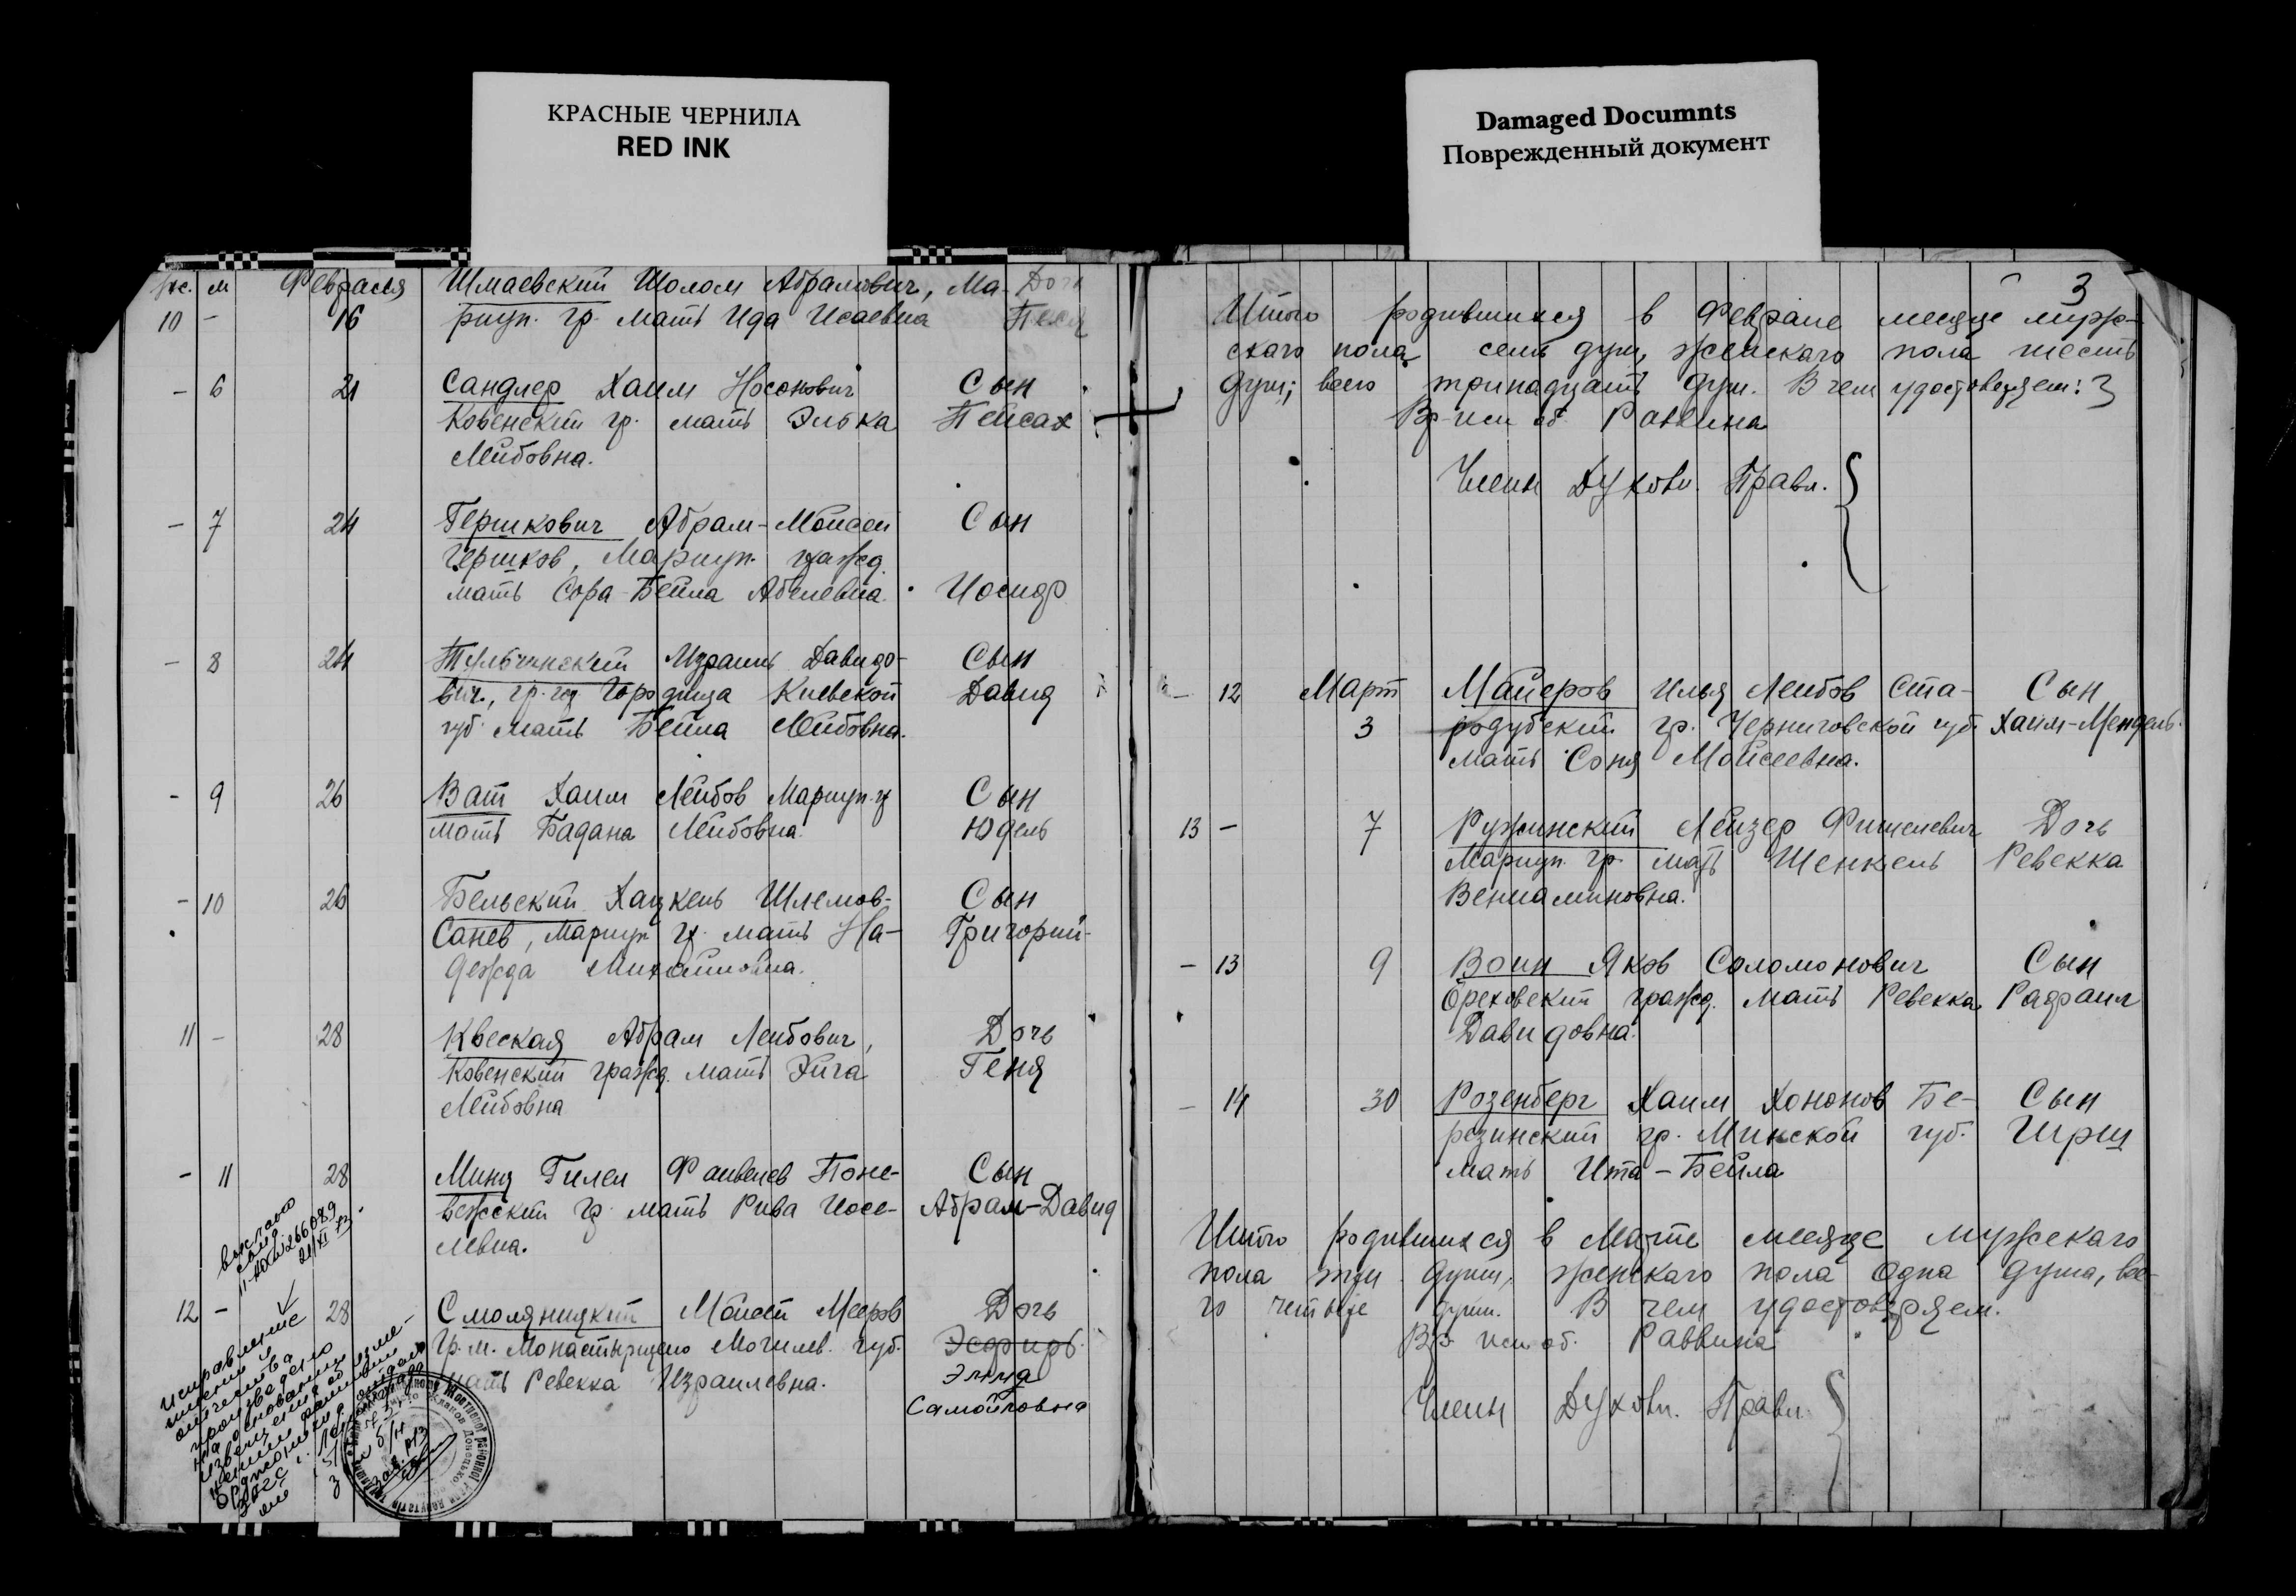 КРАСНЫЕ ЧЕРНИЛА
RED INK
Damaged Documnts
Поврежденный документ
м Февраля Шмаевский Шолом Абрамович, Ма- Дочь
10 - 16 риуп. гр. мать Ида Исаевна Песя
- 6 21 Сандлер Хаим Носонович Сын
Ковенский гр. мать Элька Пейсах
Лейбовна.
- 7 24 Гершкович Абрам-Мойсей Сын
Гершков, Мариуп. гражд.
мать Сора-Бейла Абелевна. Иосиф
- 8 24 Тульчинский Израиль Давидо- Сын
вич, гр. Городища Киевской Давид
губ. мать Бейла Лейбовна.
- 9 26 Ват Хаим Лейбов Мариуп. г Сын
мать Бадана Лейбовна. Юдель
- 10 26 Бельский Хацкель Шлемов- Сын
Санев, Мариуп. гр. мать На- Григорий-
дежда Михайловна.
11 - 28 Квеская Абрам Лейбович, Дочь
Ковенский гражд. мать Хига Геня
Лейбовна
- 11 28 Минц Гилел Файвелев Поне- Сын
вежский гр. мать Рива Иосе- Абрам-Давид
левна.
12 - 28 Смоляницкий Мойсей Мееров Дочь
Гр. м. Монастырщено Могилев. губ. Эсфирь.
мать Ревекка Израилевна. Элла
Самойловна
выслано
266089
21/XI
исправление
имени и
отчества
произведено
на основании
3
Итого родившихся в Феврале месяце мужс-
скаго пола семь душ, женскаго пола шесть
душ; всего тринадцать душ. В чем удостоверяем:
Вр-исп об. Раввина
Члены Духовн. Правл.
- 12 Март Майеров Илья Лейбов Ста- Сын
3 родубский гр. Черниговской губ. Хаим-Мендель.
мать Соня Мойсеевна.
13 - 7 Ружинский Лейзер Фишелевич Дочь
Мариуп. гр. мать Шенкель Ревекка
Вениаминовна.
- 13 9 Воин Яков Соломонович Сын
Ореховский гражд. мать Ревекка Рафаил
Давидовна.
- 14 30 Розенберг Хаим Хононов Бе- Сын
резинский гр. Минской губ. Гирш
мать Ита-Бейла
Итого родившихся в Марте месяце мужескаго
пола три души, женскаго пола одна душа, все-
го четыре души. В чем удостоверяем.
Вр исп об. Раввина
Члены Духовн. Правл.